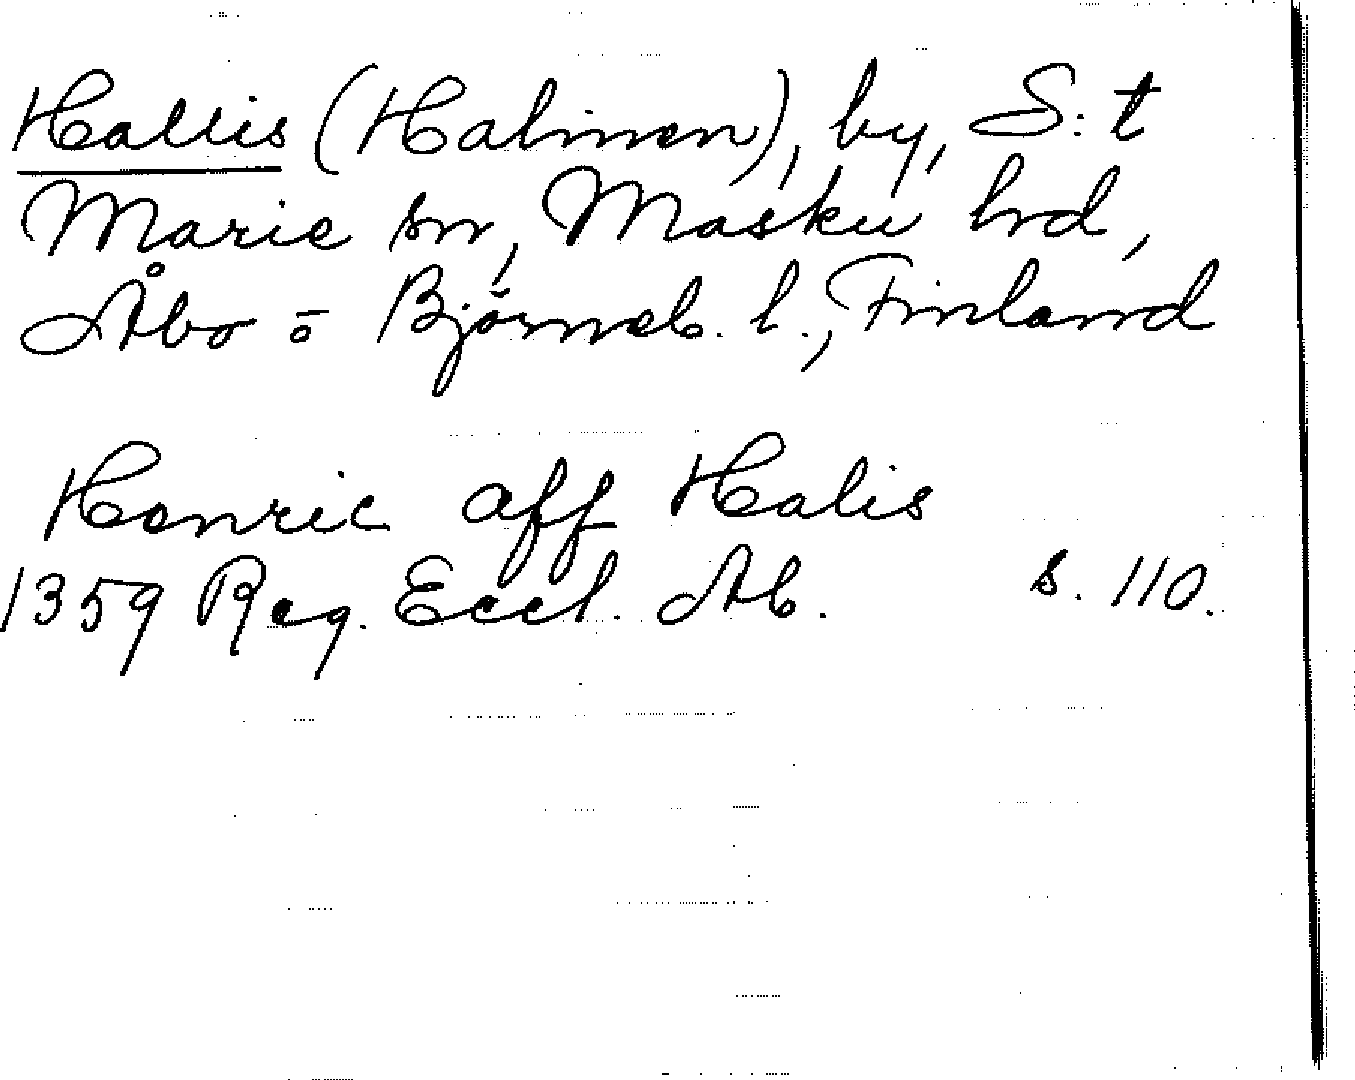 Hallis (Halinen), by, S:t
Marie sn, Masku hrd,
Åbo o Björneb. l., Finland
Henric aff Halis
1359 Reg. Eccl. Ab. s. 110.